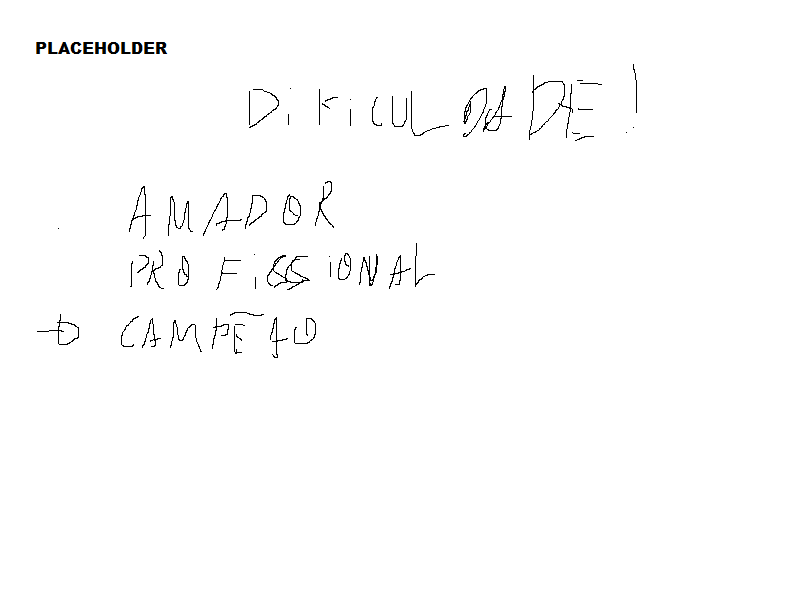 PLACEHOLDER
DiFiCULDADE!
AMADOR
PROFiSSiONAL
CAMPEÃO